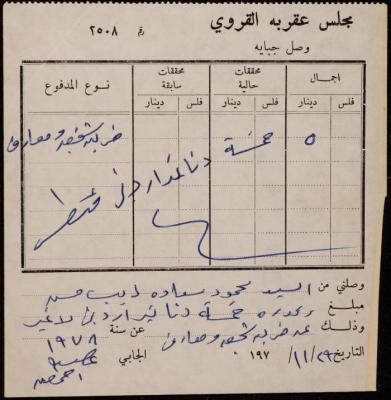 مجلس عقربه القروي
رقم ٢٥٠٨
وصل جبايه
نوع المدفوع محققات سابقة محققات حالية اجمال
فلس دينار فلس دينار فلس دينار
ضريبة شخصية ومعارف
٥ خمسة دنانير اردني
وصلني من السيد محمود سعاده ديب
مبلغ وقدره خمسة دنانير اردني لا غير
وذلك عن ضريبة شخصية ومعارف عن سنة ١٩٧٨
التاريخ ٢٩/١١/ ١٩٧ الجابي